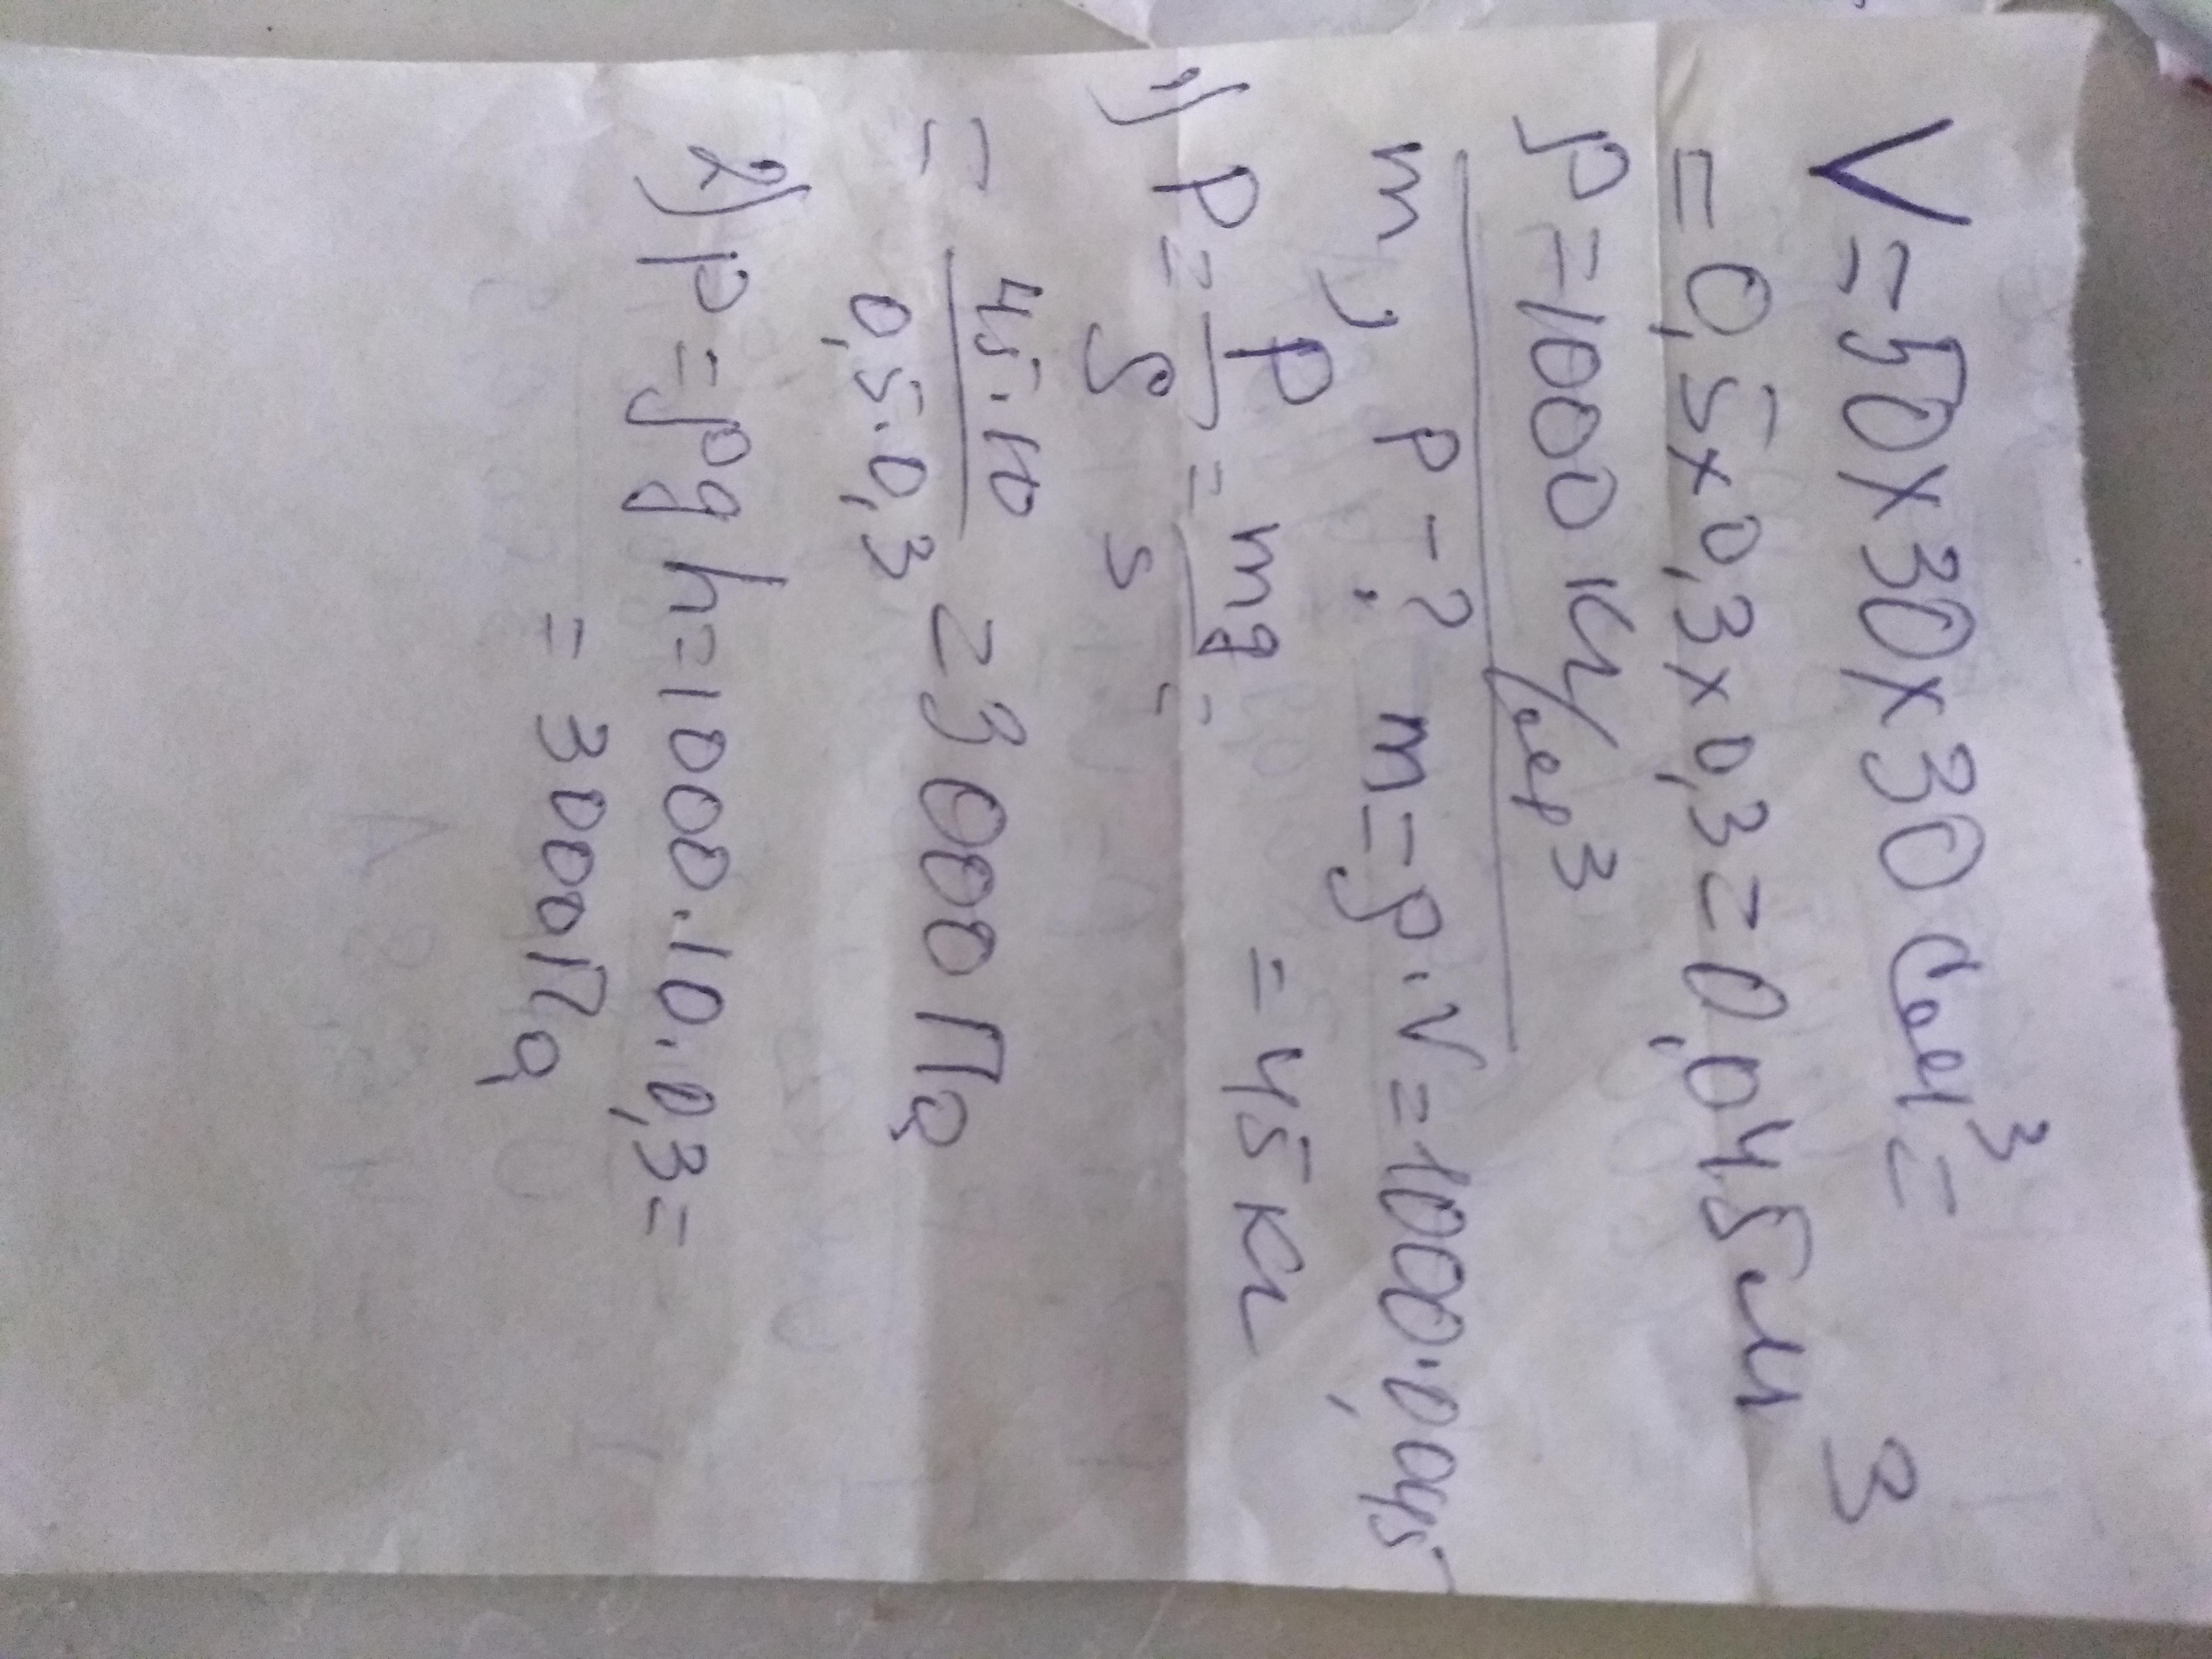 V = 50 x 30 x 30 см³ =
= 0,5 x 0,3 x 0,3 = 0,045 м³
ρ = 1000 кг/м³
m, p - ? m = ρ · V = 1000 · 0,045
= 45 кг
1) p = P/S = mg/S =
= 45 · 10 / 0,5 · 0,3 = 3000 Па
2) p = ρgh = 1000 · 10 · 0,3 =
= 3000 Па